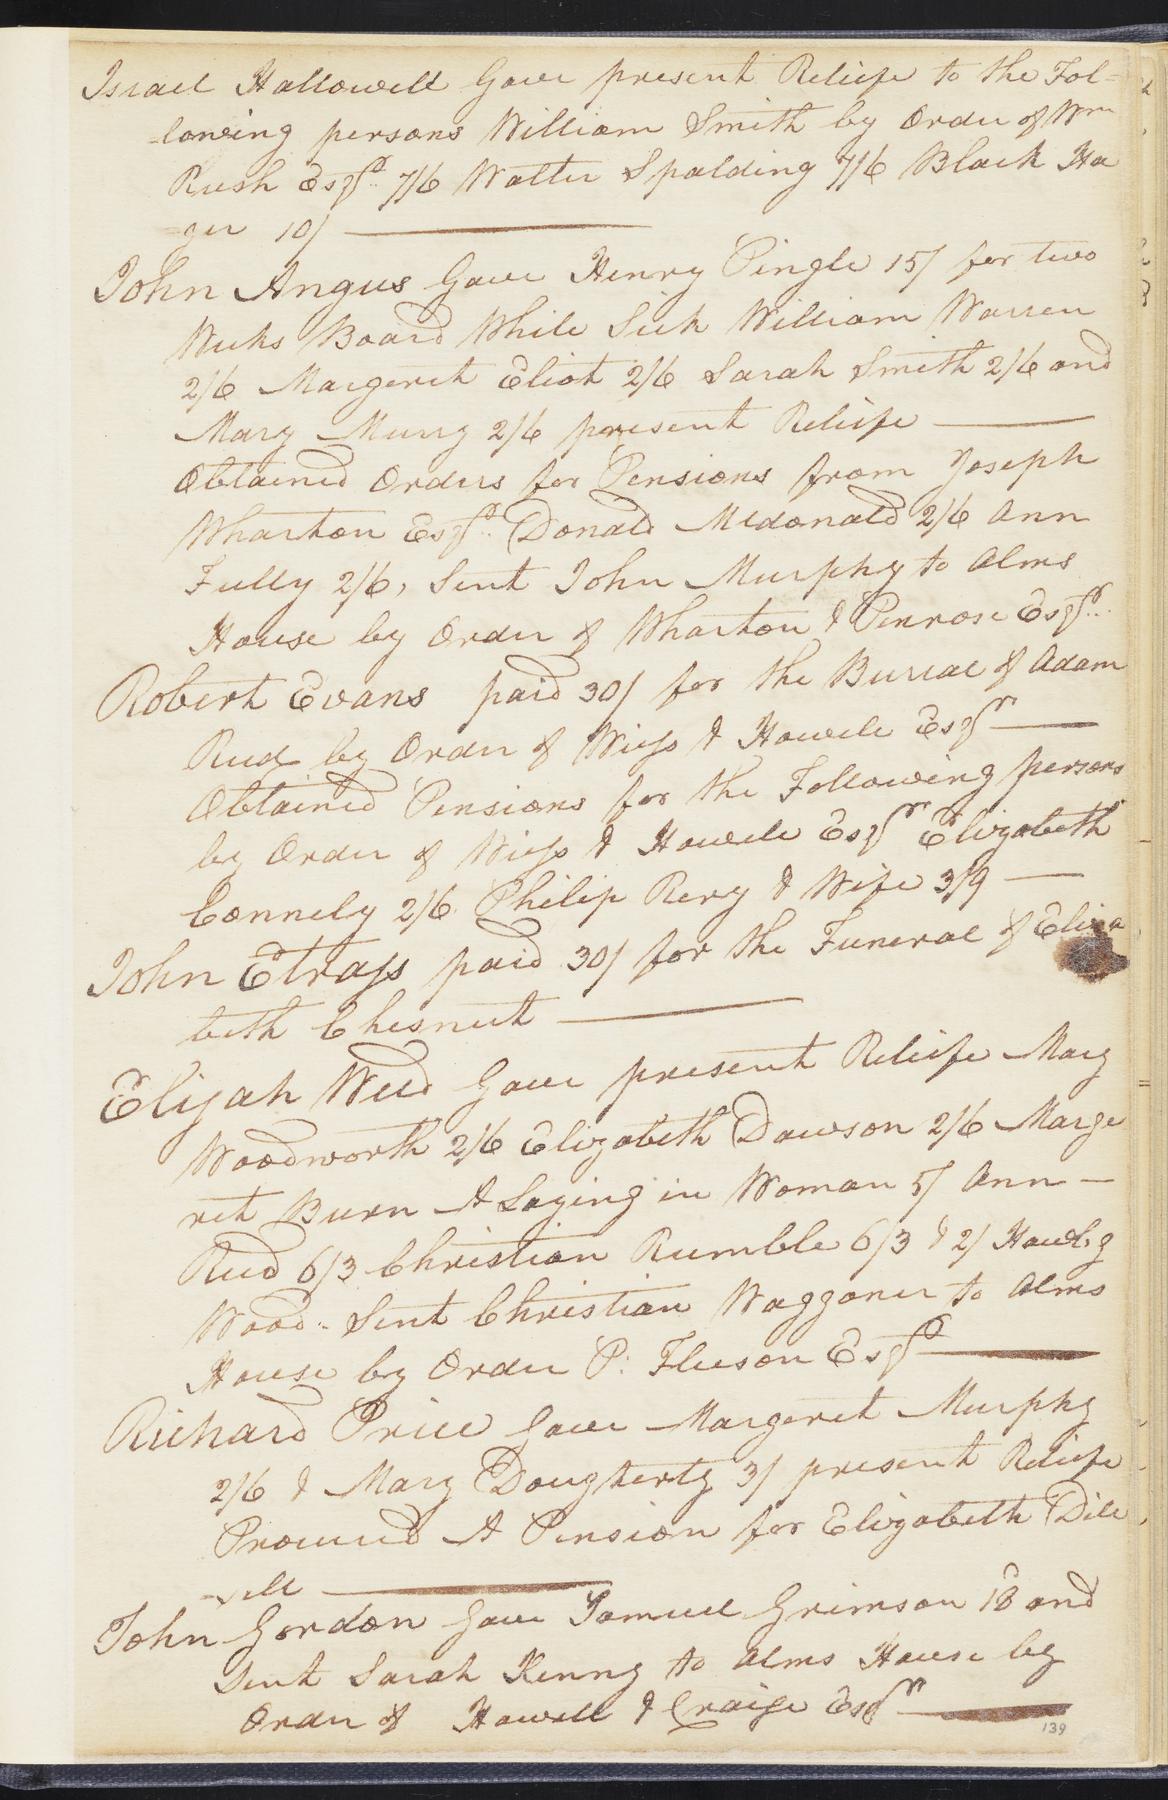 Israel Hallowell Gave present Reliefe to the Fol=
=lowing persons William Smith by Order of Wm
Rush Esqr. 7/6 Walter Spalding 7/6 Black Ha
=ger 10/
John Angus Gave Henry Pingle 15/ for two
Weeks Board While Sick William Warren
2/6 Margeret Eliot 2/6 Sarah Smith 2/6 and
Mary Murry 2/6 present Reliefe
Obtained Orders for Pensions from Joseph
Wharton Esqr. Donald Mcdonald 2/6 Ann
Fully 2/6, Sent John Murphy to Alms
House by Order of Wharton & Penrose Esqrs.
Robert Evans paid 30/ for the Burial of Adam
Rud by Order of Wiess & Howele Esqrs
Obtained Pensions for the Following persons
by Order of Wiess & Howele Esqrs Elizabeth
Connely 2/6 Philip Rery & Wife 3/9
John Etrass paid 30/ for the Funeral of Eliza
beth Chesnut
Elijah Weed Gave present Reliefe Mary
Woodworth 2/6 Elizabeth Dawson 2/6 Marge
ret Burn A Laying in Woman 5/ Ann
Rud 6/3 Christian Rumble 6/3 & 2/ Hawl.g
Wood. Sent Christian Waggoner to Alms
House by Order P: Fleeson Esqr
Richard Price Gave Margeret Murphy
2/6 & Mary Dougherty 3/ present Reliefe
Procured A Pension for Elizabeth Dill
John Gordon Gave Samuel Grimson 18 and
Sent Sarah Kenny to Alms House by
Order of Howell & Craige Esqrs
139